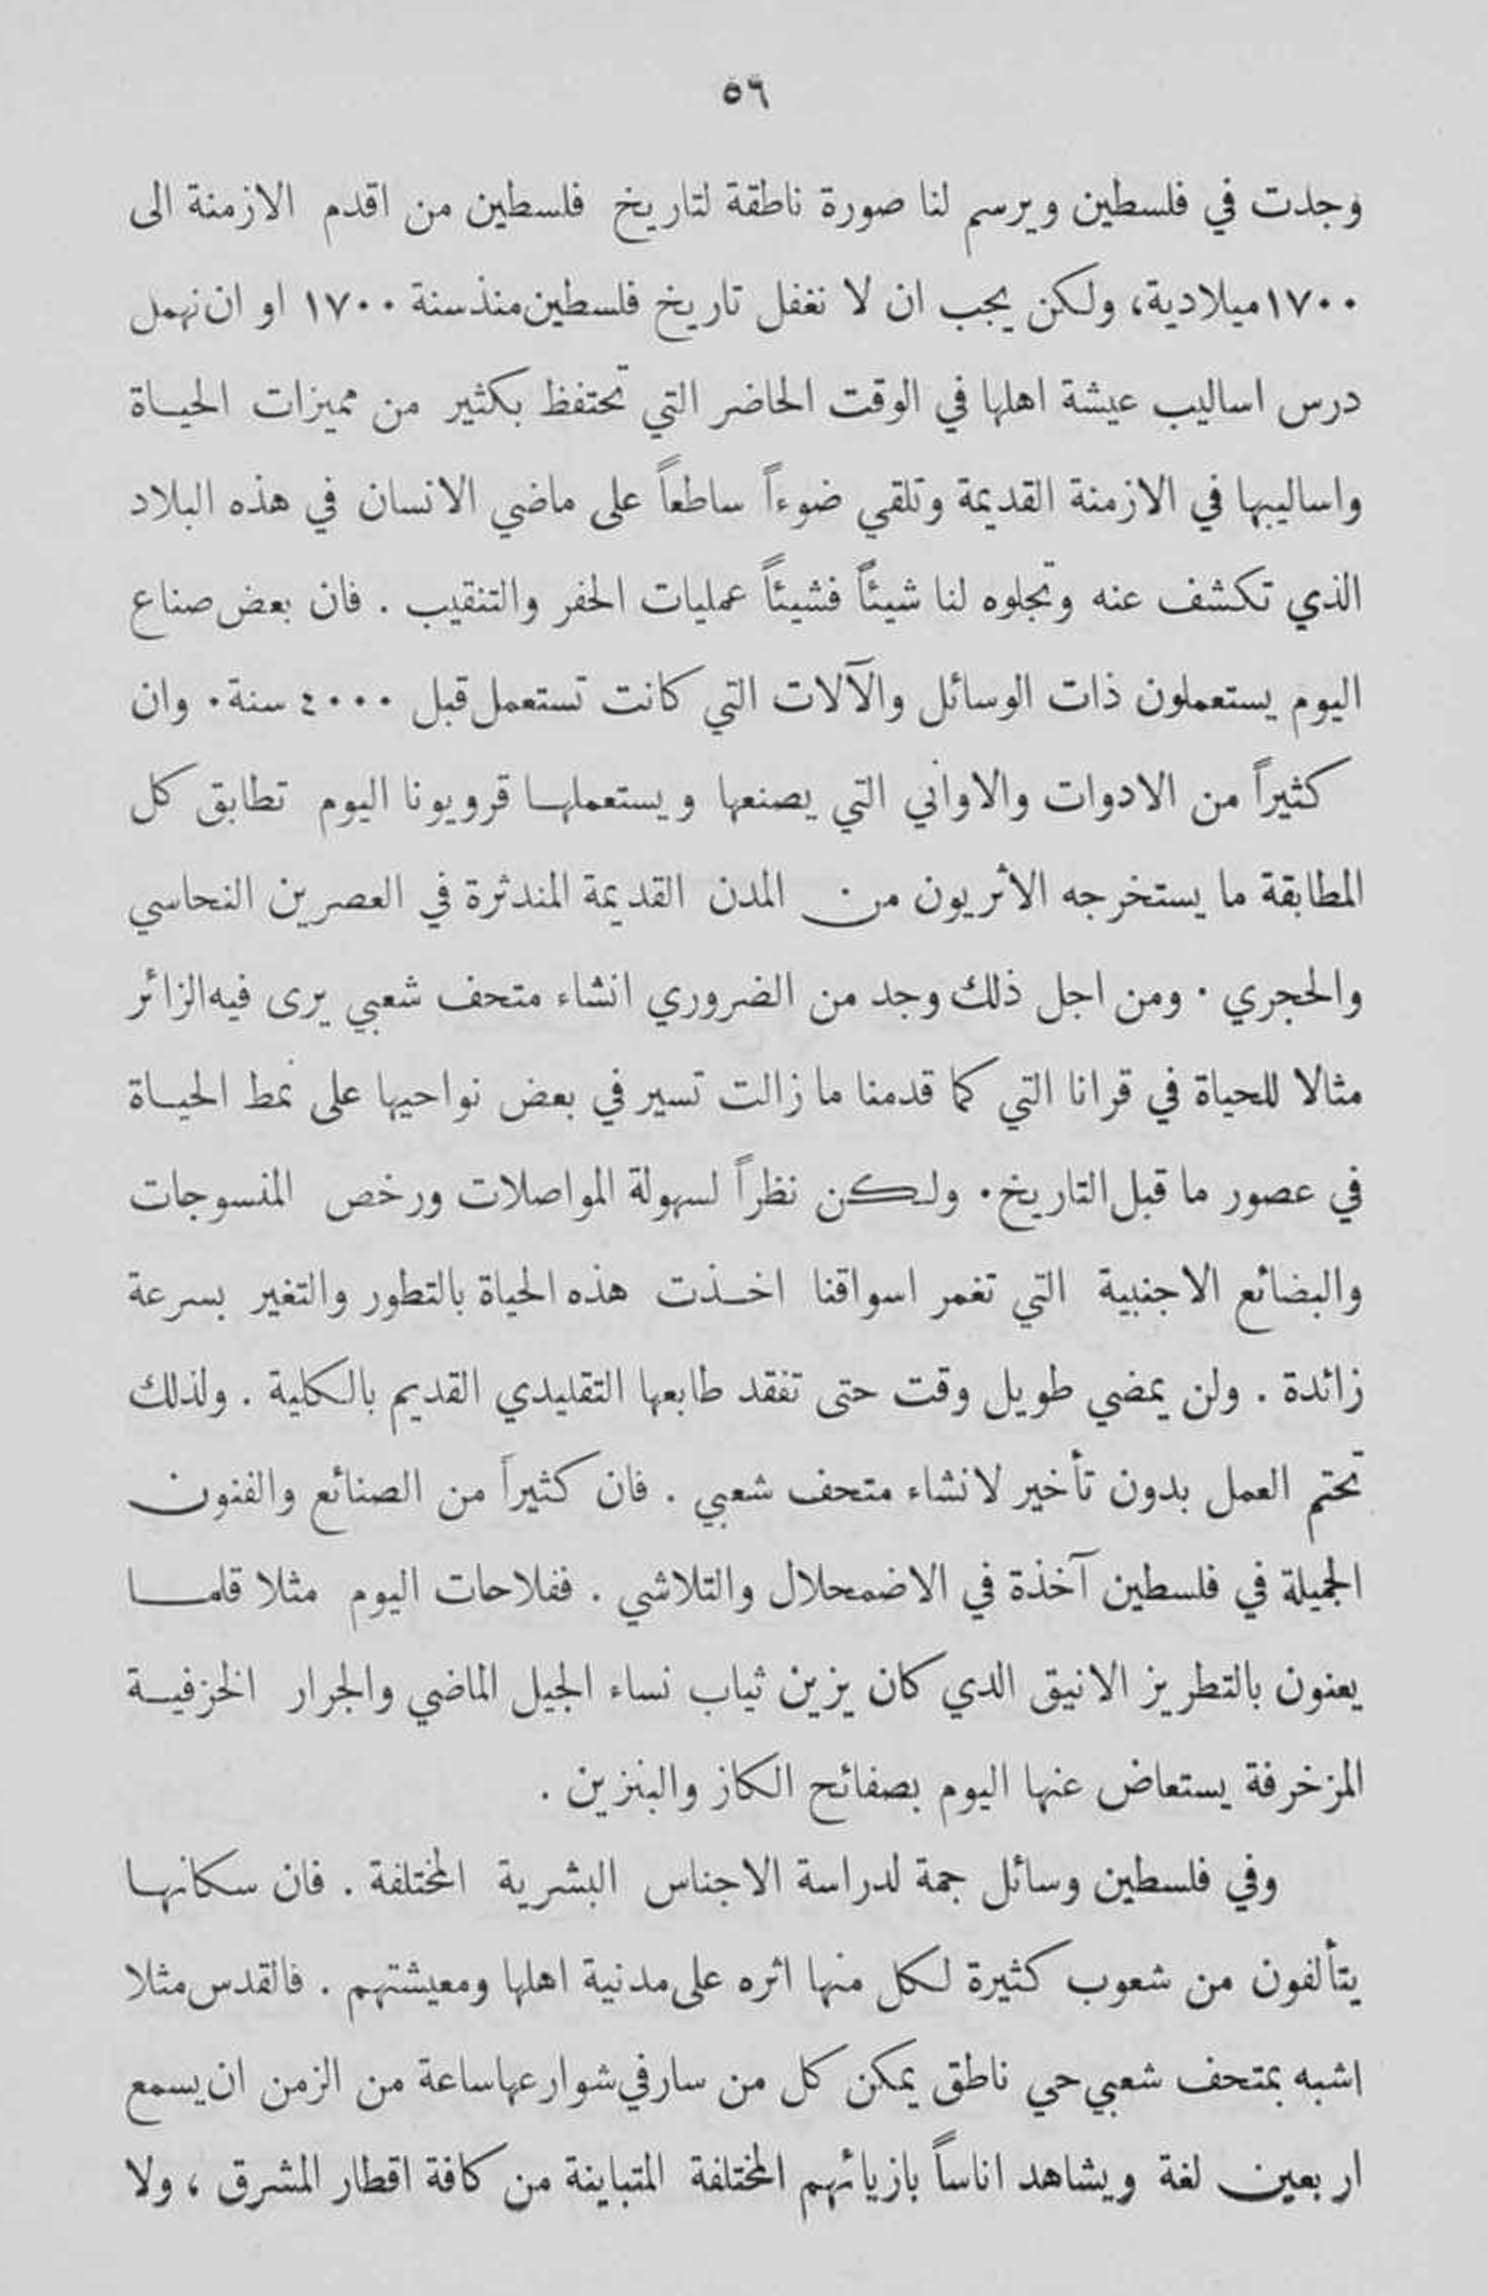 ٥٦
وجدت في فلسطين ويرسم لنا صورة ناطقة لتاريخ فلسطين من اقدم الازمنة الى
١٧٠٠ ميلادية، ولكن يجب ان لا نغفل تاريخ فلسطين منذ سنة ١٧٠٠ او ان نهمل
درس اساليب عيشة اهلها في الوقت الحاضر التي تحتفظ بكثير من مميزات الحياة
واساليبها في الازمنة القديمة وتلقي ضوءاً ساطعاً على ماضي الانسان في هذه البلاد
الذي تكشف عنه وتجلوه لنا شيئاً فشيئاً عمليات الحفر والتنقيب . فان بعض صناع
اليوم يستعملون ذات الوسائل والآلات التي كانت تستعمل قبل ٤٠٠٠ سنة. وان
كثيراً من الادوات والاواني التي يصنعها ويستعملها قرويونا اليوم تطابق كل
المطابقة ما يستخرجه الاثريون من المدن القديمة المندثرة في العصرين النحاسي
والحجري . ومن اجل ذلك وجد من الضروري انشاء متحف شعبي يرى فيه الزائر
مثالا للحياة في قرانا التي كما قدمنا ما زالت تسير في بعض نواحيها على نمط الحياة
في عصور ما قبل التاريخ. ولكن نظراً لسهولة المواصلات ورخص المنسوجات
والبضائع الاجنبية التي تغمر اسواقنا اخذت هذه الحياة بالتطور والتغير بسرعة
زائدة . ولن يمضي طويل وقت حتى تفقد طابعها التقليدي القديم بالكلية . ولذلك
تحتم العمل بدون تأخير لانشاء متحف شعبي . فان كثيراً من الصنائع والفنون
الجميلة في فلسطين آخذة في الاضمحلال والتلاشي . ففلاحات اليوم مثلا قلما
يعنون بالتطريز الانيق الدي كان يزين ثياب نساء الجيل الماضي والجرار الخزفية
المزخرفة يستعاض عنها اليوم بصفائح الكاز والبنزين .
وفي فلسطين وسائل جمة لدراسة الاجناس البشرية المختلفة . فان سكانها
يتألفون من شعوب كثيرة لكل منها اثره على مدنية اهلها ومعيشتهم . فالقدس مثلا
اشبه بمتحف شعبي حي ناطق يمكن كل من سار في شوارعها ساعة من الزمن ان يسمع
اربعين لغة ويشاهد اناساً بازيائهم المختلفة المتباينة من كافة اقطار المشرق ، ولا